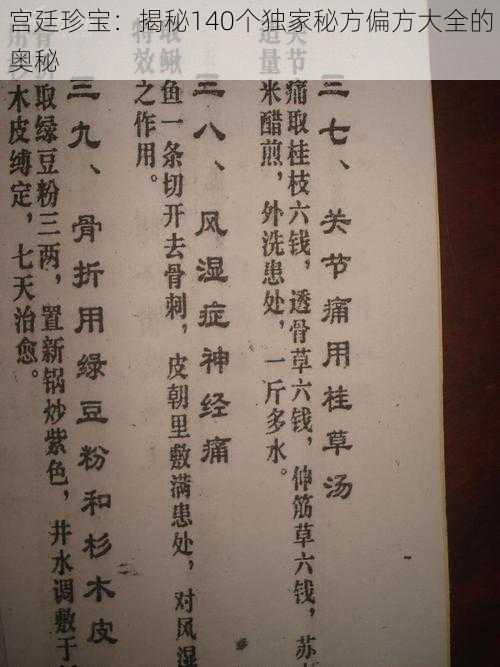 宫廷珍宝：揭秘140个独家秘方偏方大全的
奥秘
三七、关节痛用桂草汤
关节痛取桂枝六钱，透骨草六钱，伸筋草六钱，苏
量米醋煎，外洗患处，一斤多水。
三八、风湿症神经痛
取鳅鱼一条切开去骨刺，皮朝里敷满患处，对风湿
特效之作用。
三九、骨折用绿豆粉和杉木皮
折取绿豆粉三两，置新锅炒紫色，井水调敷于
木皮缚定，七天治愈。